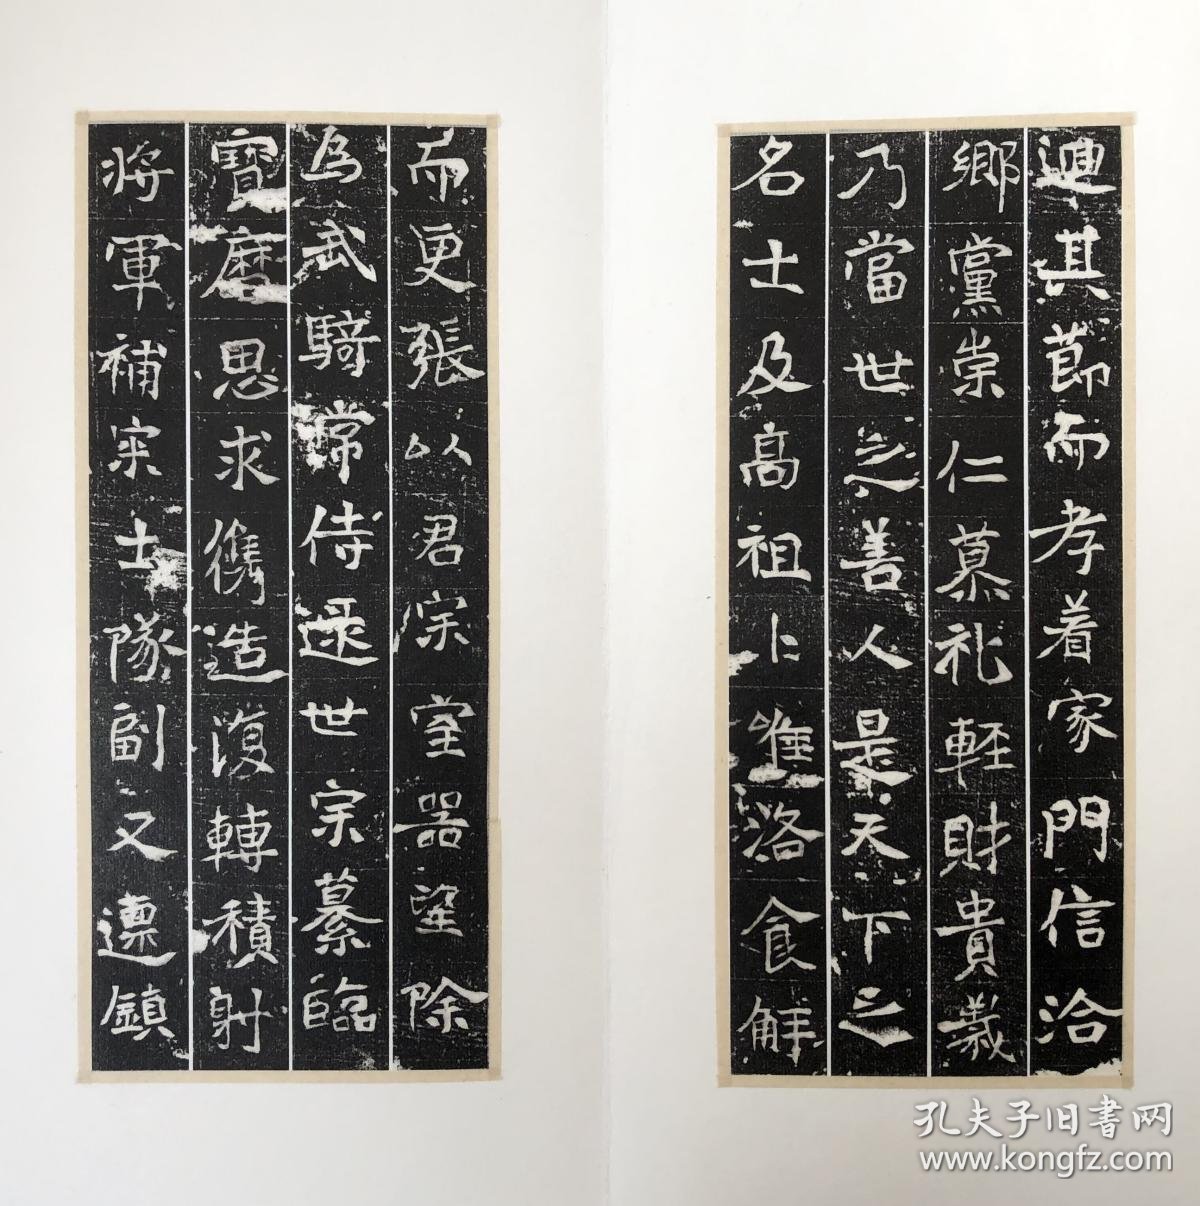 迪其節而孝着家門信洽
鄉黨崇仁慕礼軽財貴義
乃當世之善人是天下之
名士及高祖卜惟洛食解
而更張以君宗室器望除
為武騎常侍逮世宗纂臨
寶曆思求儁造復轉積射
将軍補宗士隊副又遷鎮
孔夫子旧書网
www.kongfz.com